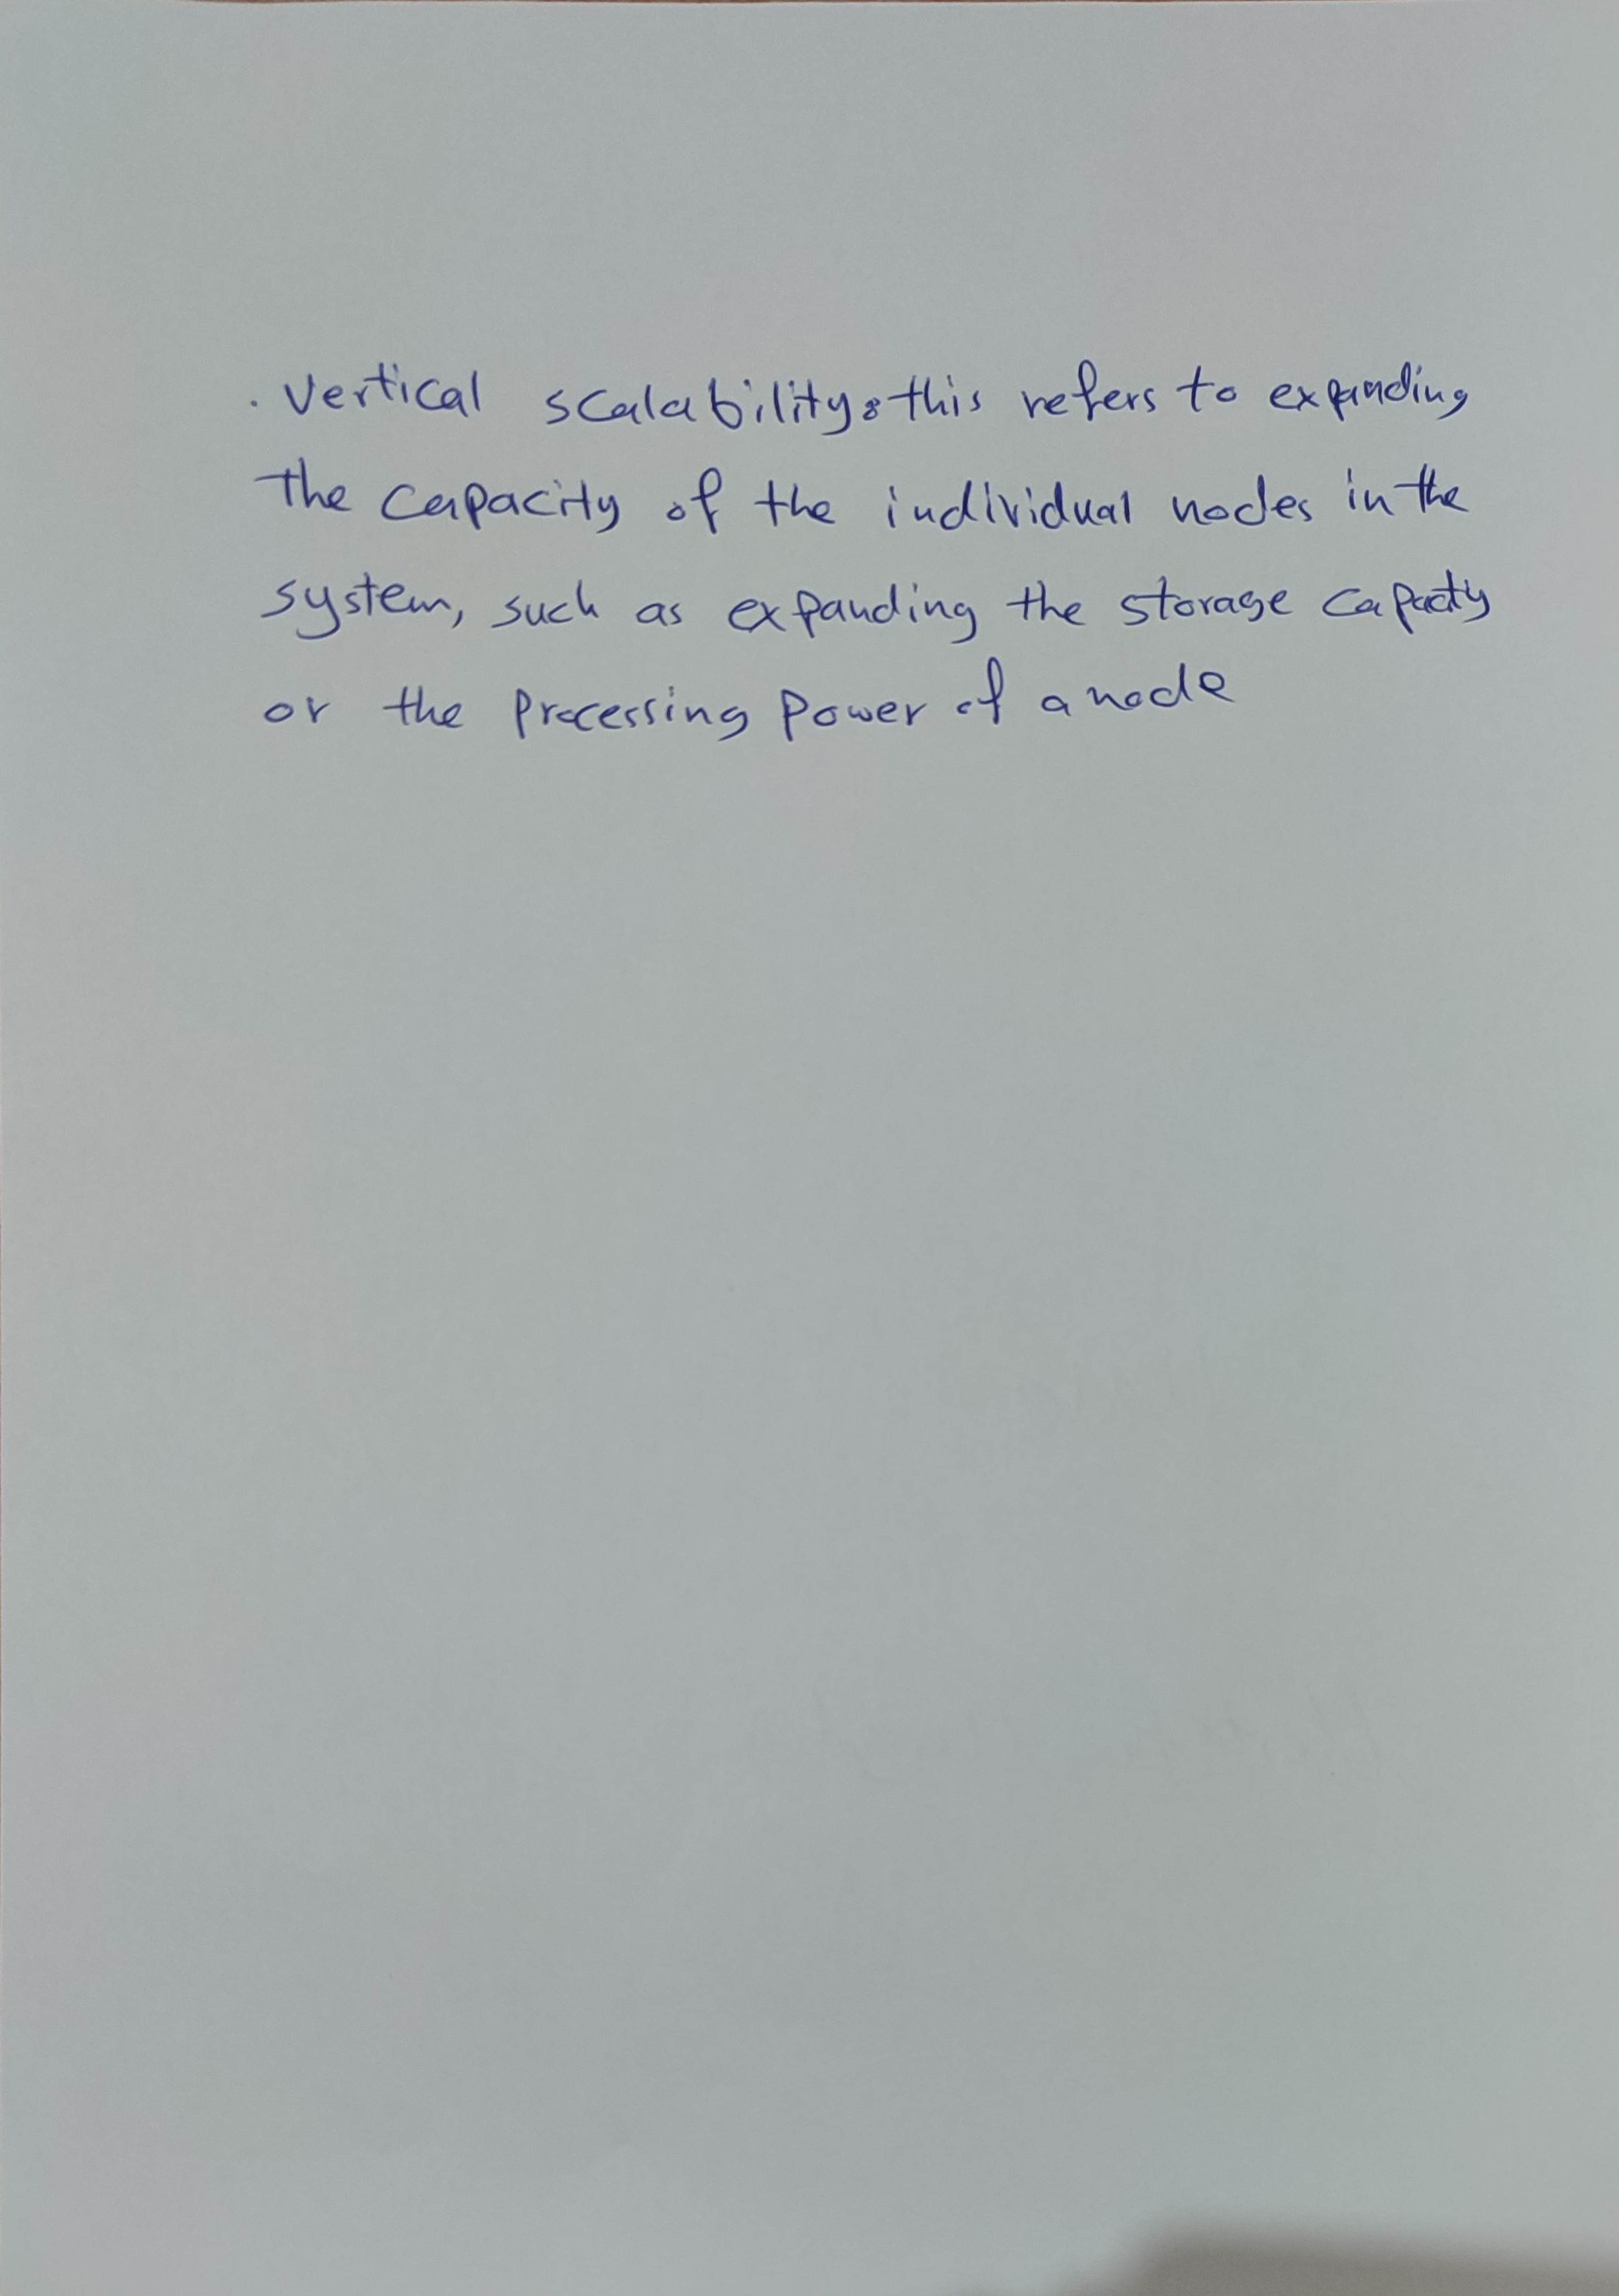 . Vertical scalability: this refers to expanding
the capacity of the individual nodes in the
system, such as expanding the storage capacity
or the processing power of a node